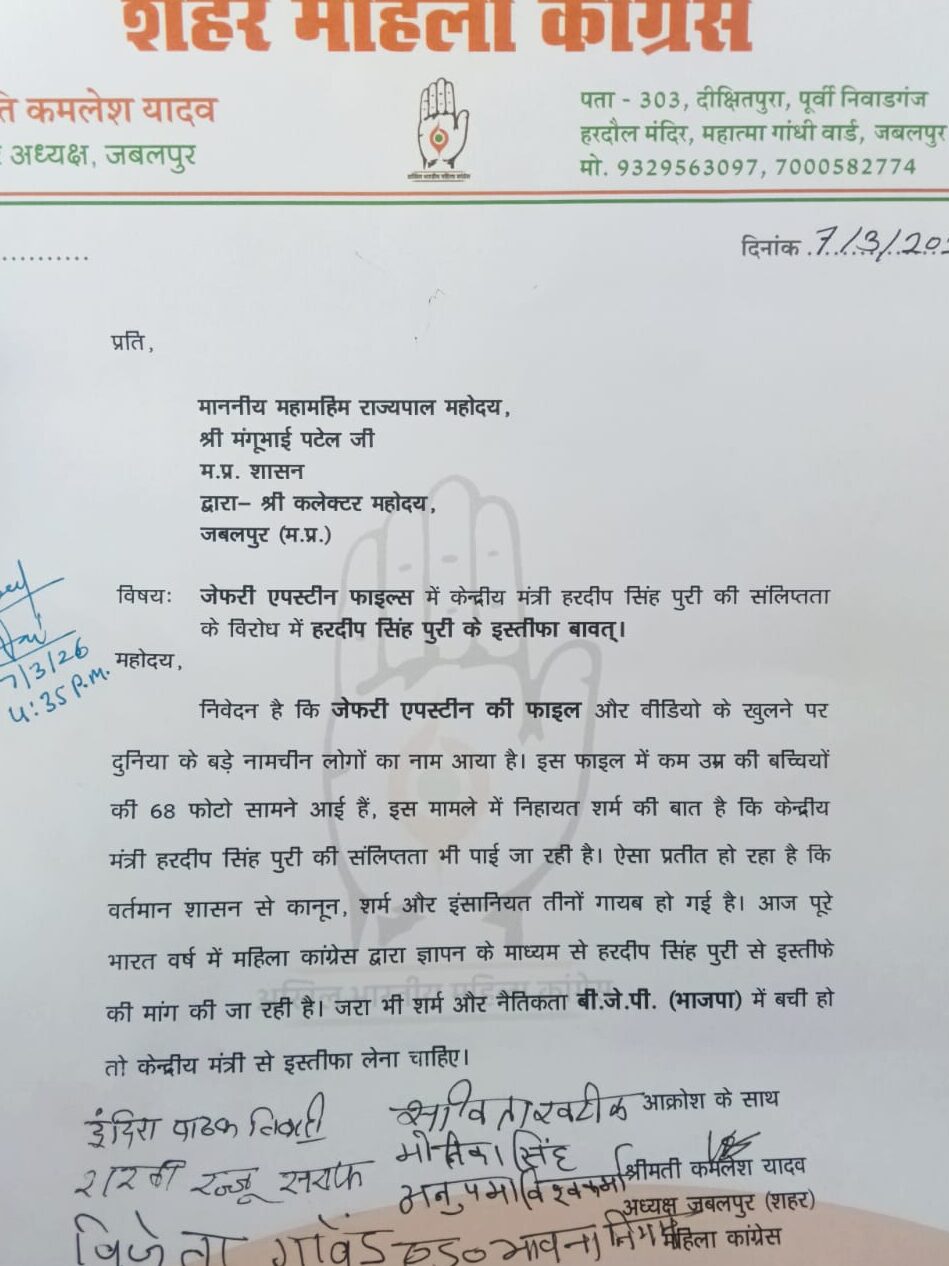 शहर महिला कांग्रेस
कमलेश यादव
अध्यक्ष, जबलपुर
पता - 303, दीक्षितपुरा, पूर्वी निवाडगंज
हरदौल मंदिर, महात्मा गांधी वार्ड, जबलपुर
मो. 9329563097, 7000582774
दिनांक 7/3/202
प्रति,
माननीय महामहिम राज्यपाल महोदय,
श्री मंगूभाई पटेल जी
म.प्र. शासन
द्वारा– श्री कलेक्टर महोदय,
जबलपुर (म.प्र.)
7/3/26
4:35 P.M.
विषयः जेफरी एपस्टीन फाइल्स में केन्द्रीय मंत्री हरदीप सिंह पुरी की संलिप्तता
के विरोध में हरदीप सिंह पुरी के इस्तीफा बावत्।
महोदय,
निवेदन है कि जेफरी एपस्टीन की फाइल और वीडियो के खुलने पर
दुनिया के बड़े नामचीन लोगों का नाम आया है। इस फाइल में कम उम्र की बच्चियों
की 68 फोटो सामने आई हैं, इस मामले में निहायत शर्म की बात है कि केन्द्रीय
मंत्री हरदीप सिंह पुरी की संलिप्तता भी पाई जा रही है। ऐसा प्रतीत हो रहा है कि
वर्तमान शासन से कानून, शर्म और इंसानियत तीनों गायब हो गई है। आज पूरे
भारत वर्ष में महिला कांग्रेस द्वारा ज्ञापन के माध्यम से हरदीप सिंह पुरी से इस्तीफे
की मांग की जा रही है। जरा भी शर्म और नैतिकता बी.जे.पी. (भाजपा) में बची हो
तो केन्द्रीय मंत्री से इस्तीफा लेना चाहिए।
अखिल भारतीय महिला कांग्रेस
आक्रोश के साथ
इंदिरा पाठक तिवारी
सविता खटीक
मोनिका सिंह
रज्जू सराफ
अनुपमा विश्वकर्मा
श्रीमती कमलेश यादव
अध्यक्ष जबलपुर (शहर)
महिला कांग्रेस
भावना निगम